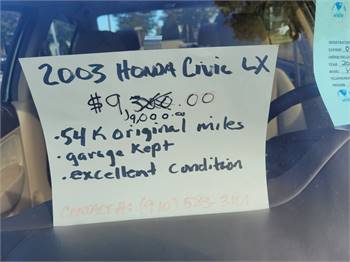 2003 HONDA Civic LX
$9,300.00
9,000.00
• 54K original miles
• garage kept
• excellent condition